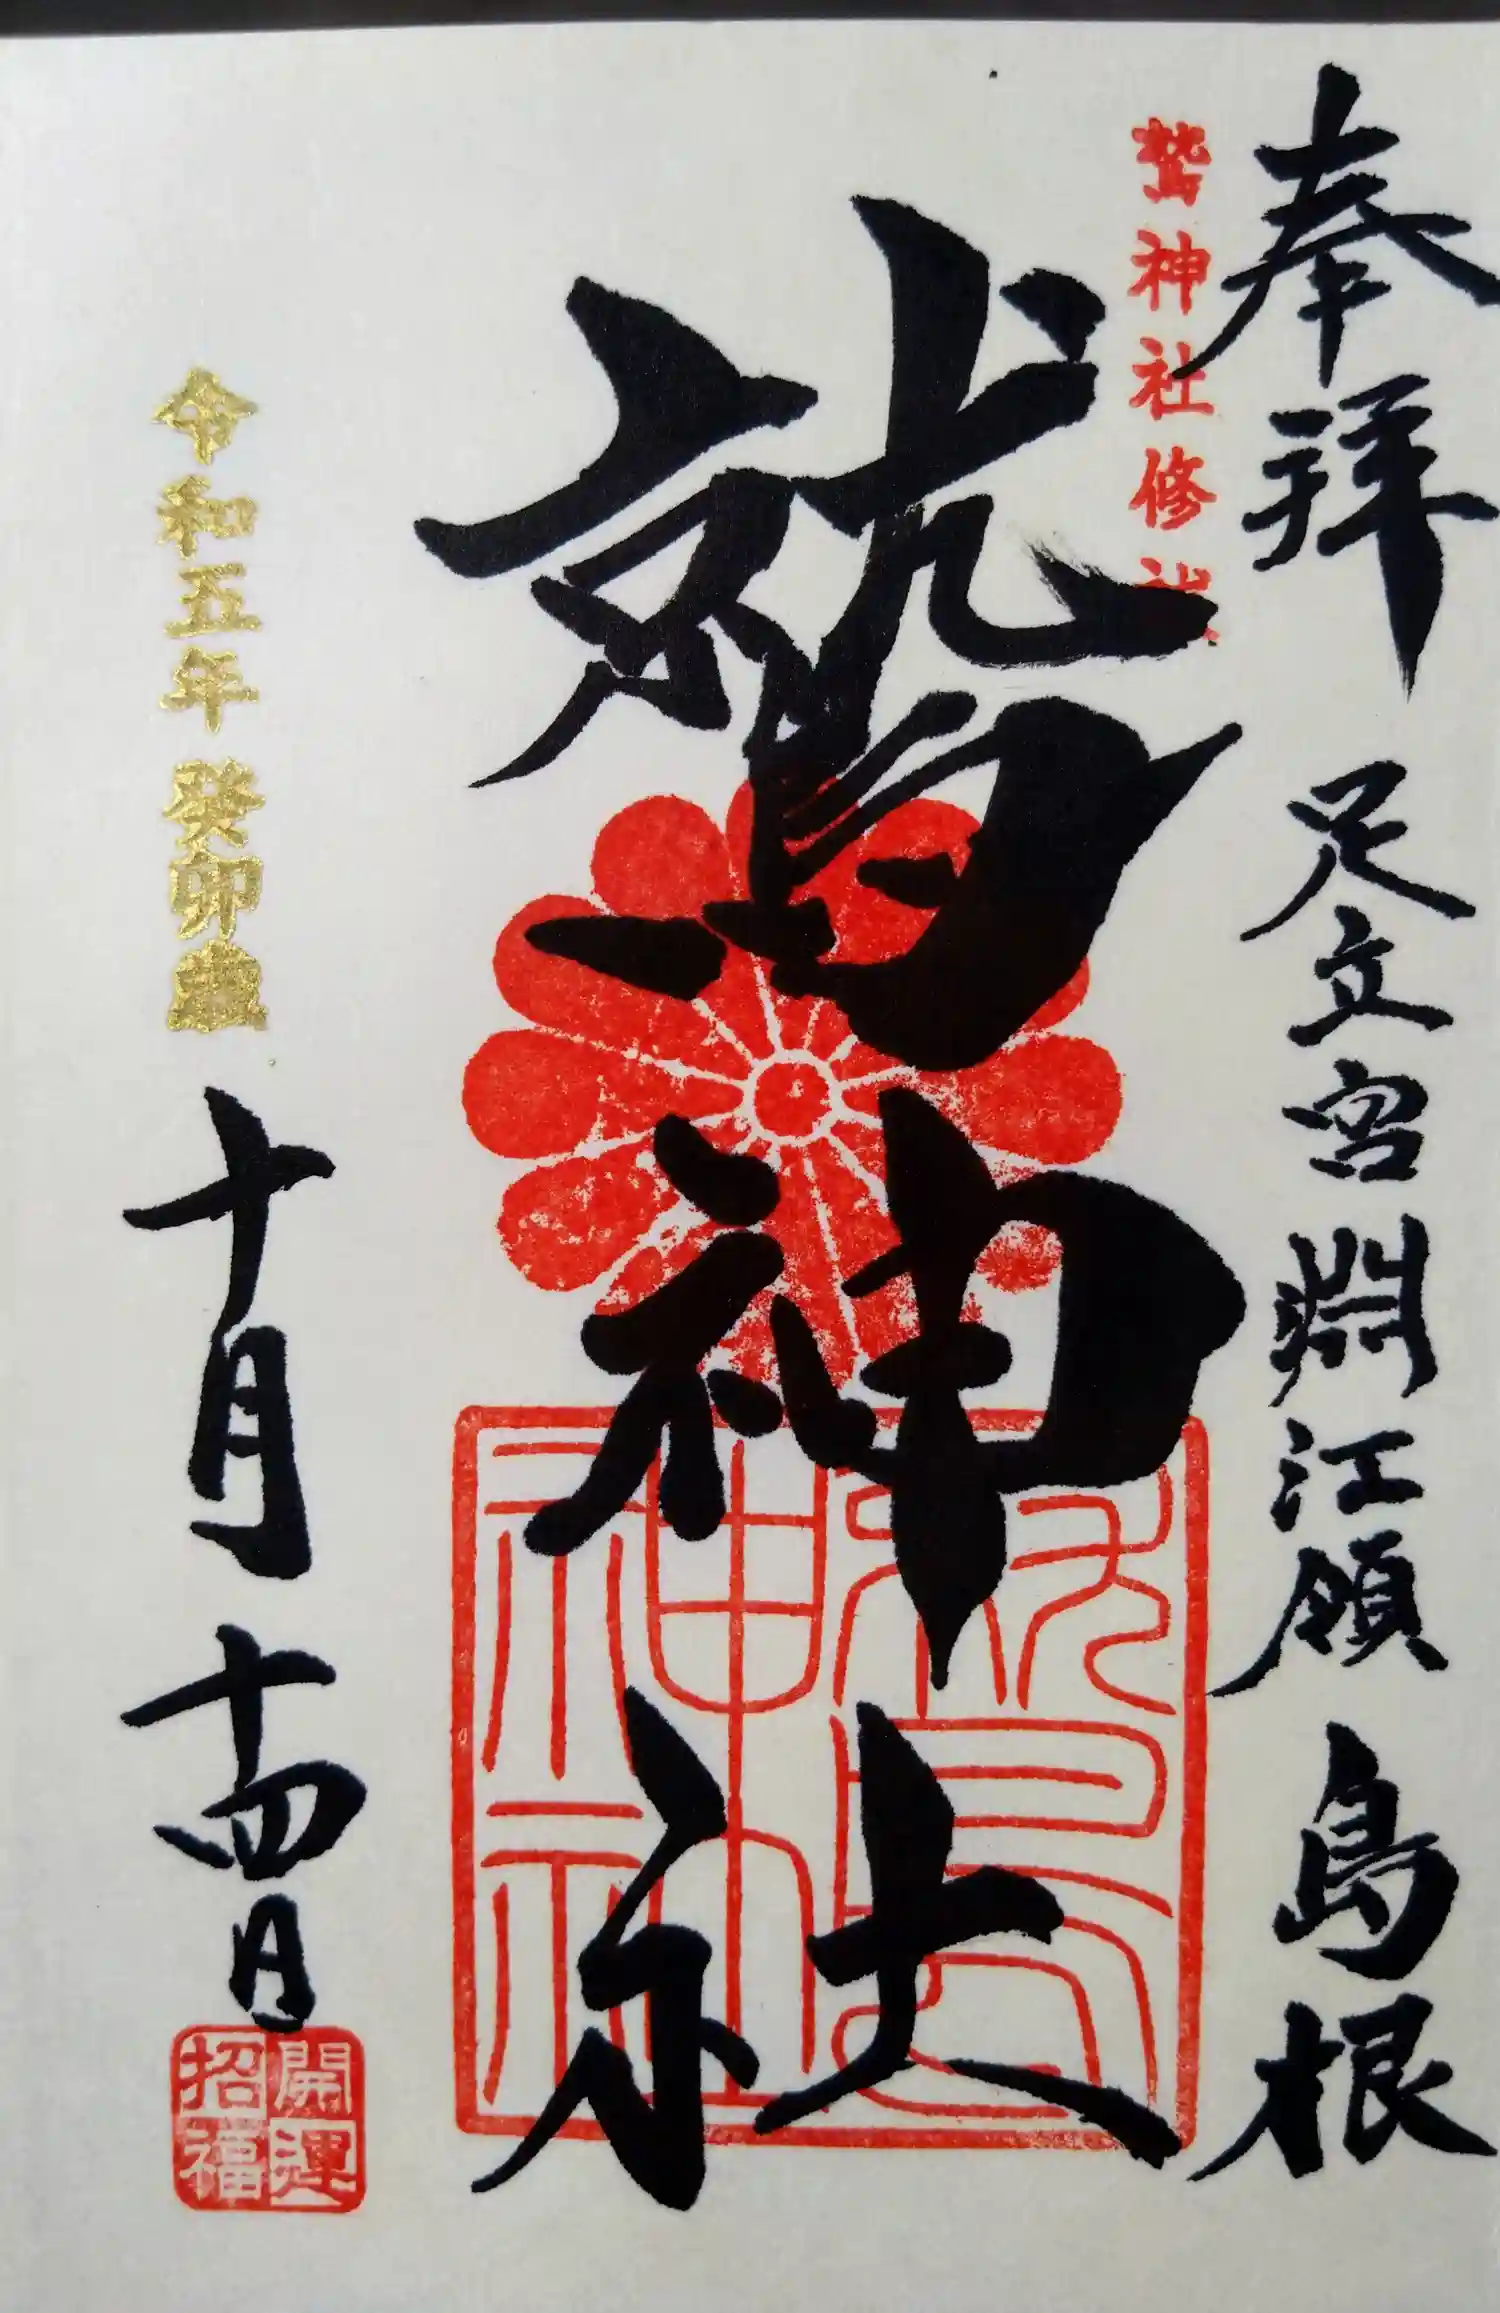 奉拝 足立宮 淵江領 島根
鷲神社修
鷲神社
鷲神社
令和五年 癸卯歳
十月十四日
開運招福